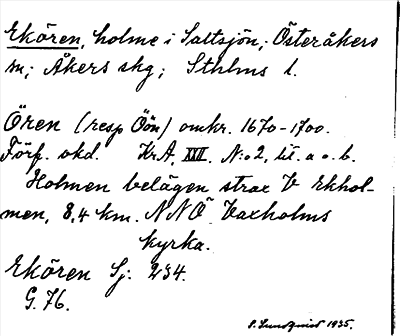 Ekören, holme i Saltsjön, Österåkers
sn; Åkers skg; Sthlms l.
Ören (resp Öön) omkr. 1670-1700.
Förf. okd. KrA, XXII. N:o 2, lit. a o. b.
Holmen belägen strax V Ekhol-
men, 8,4 km. NNÖ Vaxholms
kyrka.
Ekören Sj: 234.
G. 76.
S. Lundqvist 1935.